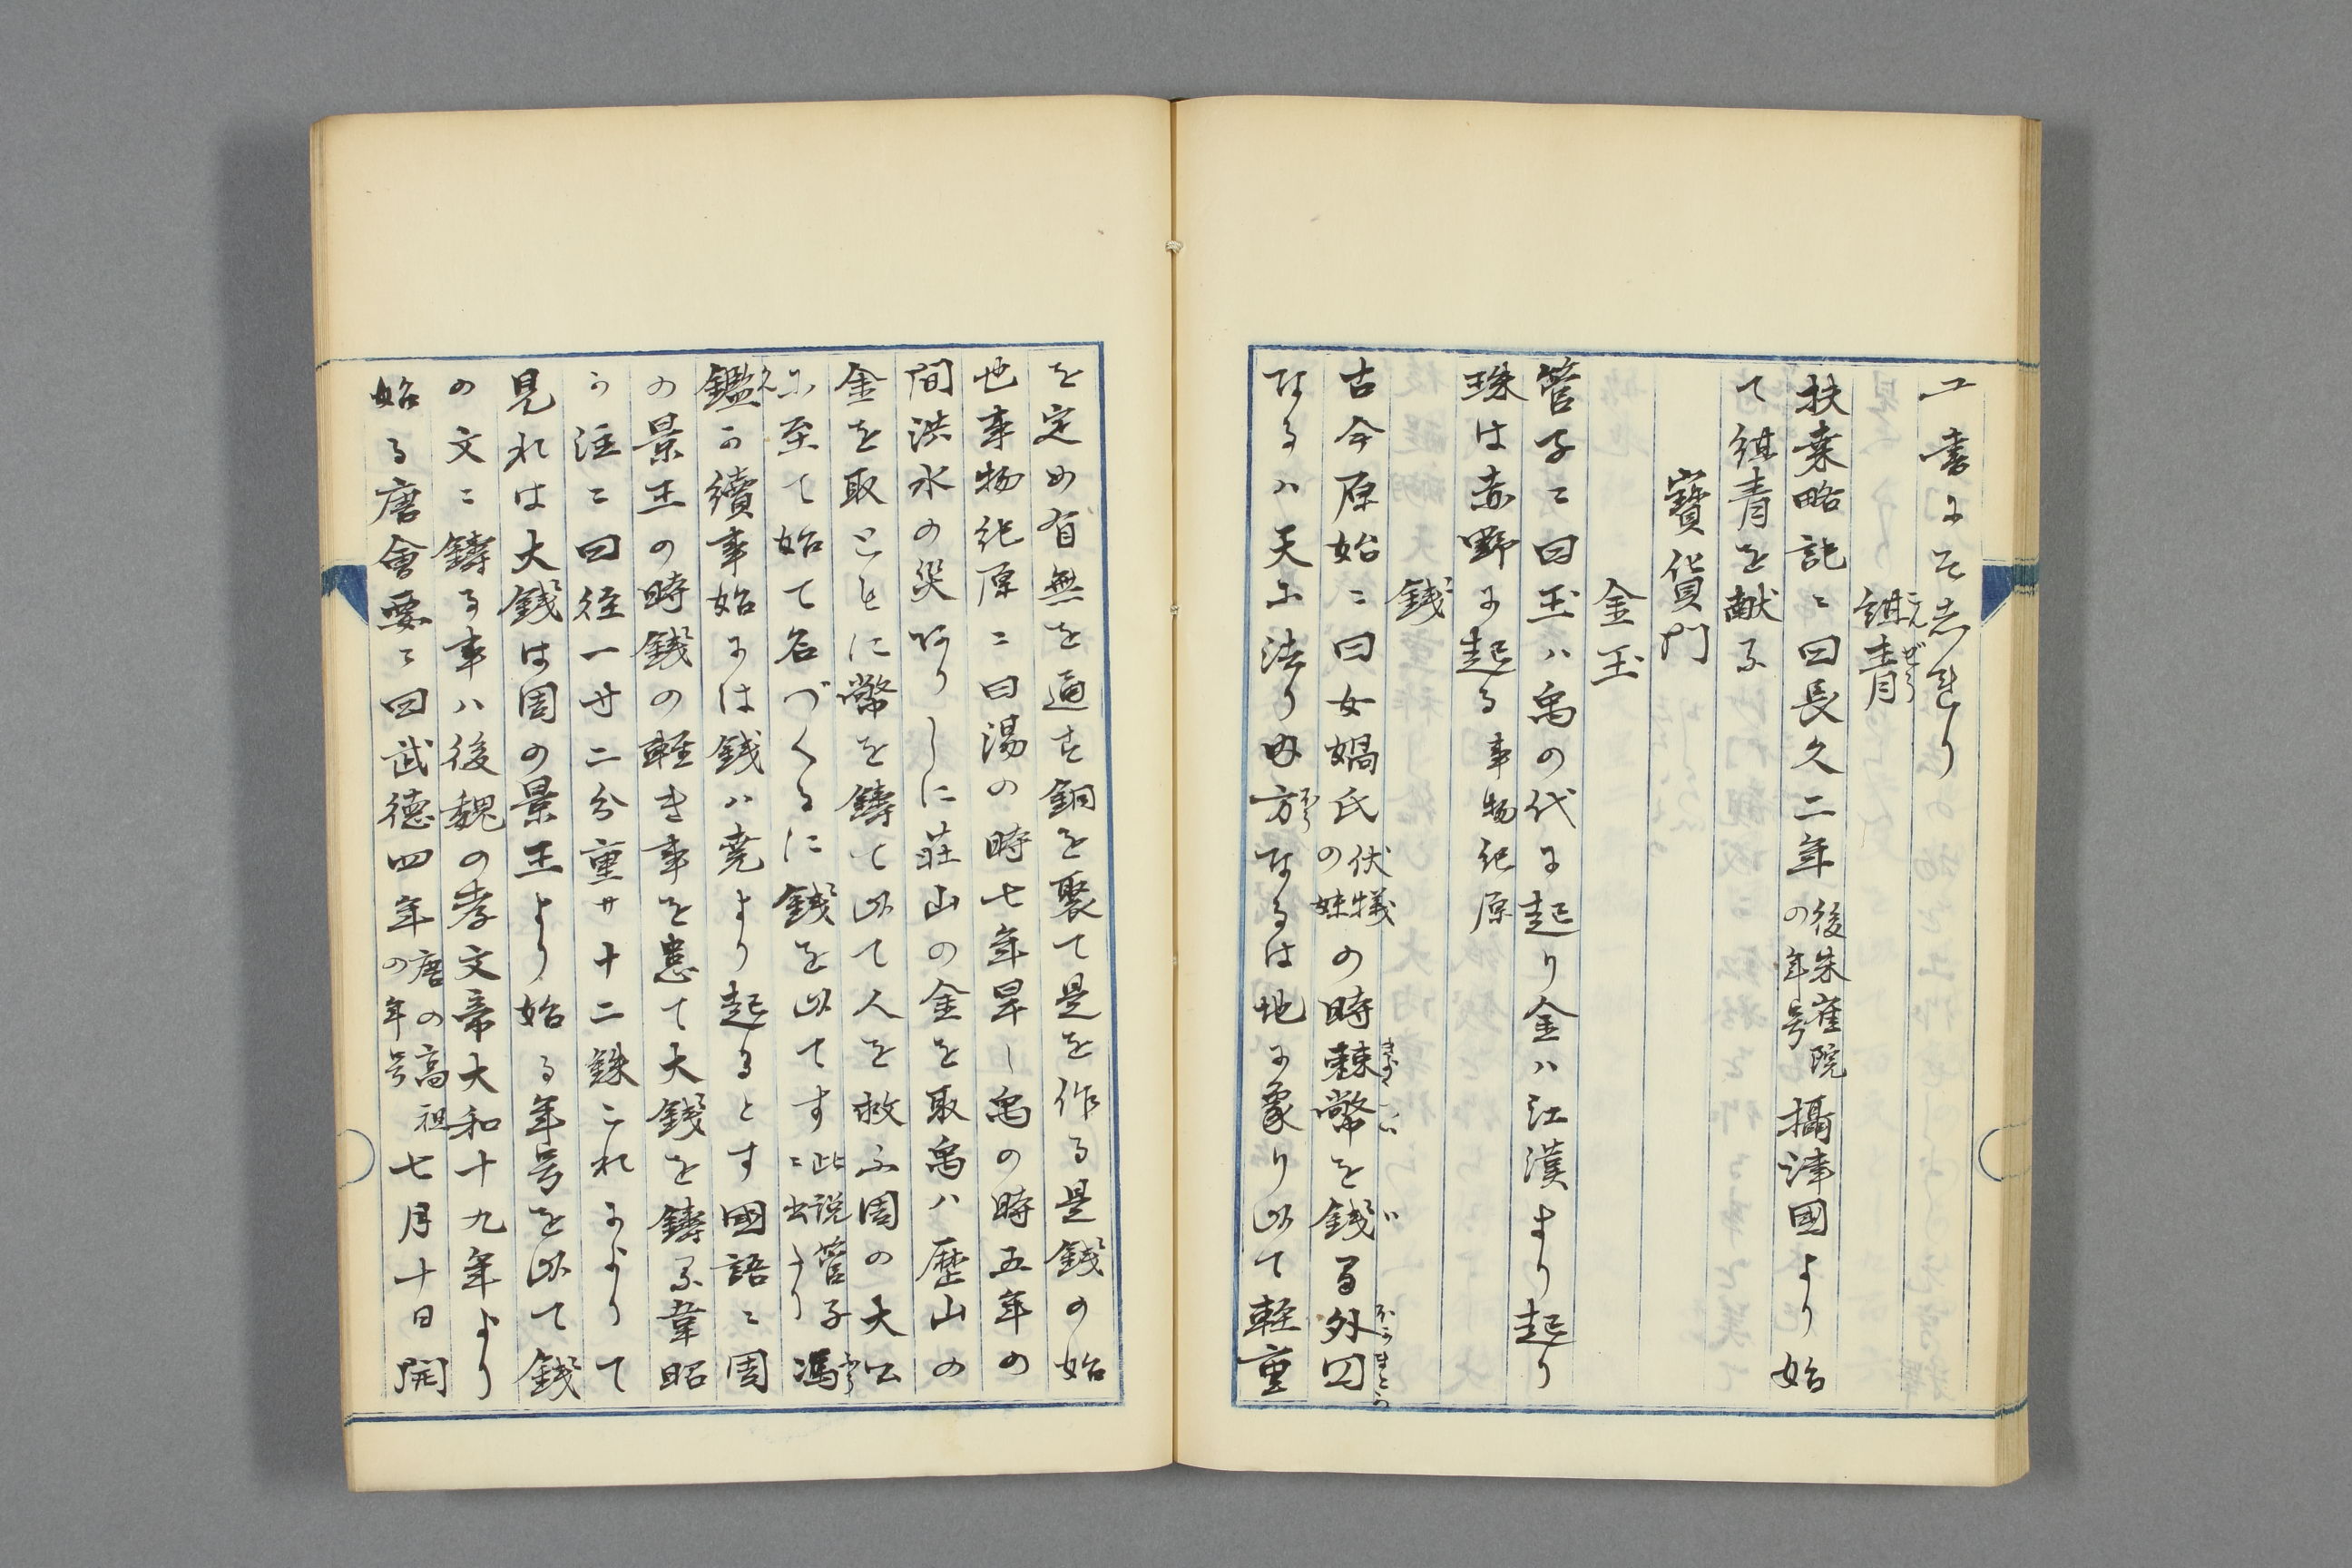 ユ書にそ志るせり
紺青
扶桑略記ニ曰長久二年後朱雀院の年号攝津國より始
て紺青を献る
寳貨門
金玉
管子ニ曰玉ハ禹の代に起り金ハ江漢より起り
珠は赤野に起る事物紀原
銭
古今原始ニ曰女媧氏伏犠の妹の時棘幣を銭る外円
なるハ天に法り内方なるは地に象り以て軽重
を定め有無を通す銅を聚て是を作る是銭の始
也事物紀原ニ曰湯の時七年旱し禹の時五年の
間洪水の災ありしに荘山の金を取禹ハ歴山の
金を取ことに幣を鋳て以て人を救ふ周の大公
に至て始て名づくるに銭を以てす此説管子ニ出たり馮
鑑か續事始には銭ハ堯より起るとす國語ニ周
の景王の時銭の軽き事を患て大銭を鋳る韋昭
か注ニ曰径一寸二分重サ十二銖これによりて
見れは大銭は周の景王より始る年号を以て銭
の文ニ鋳る事ハ後魏の孝文帝大和十九年より
始る唐會要ニ曰武徳四年唐の高祖の年号七月十日開